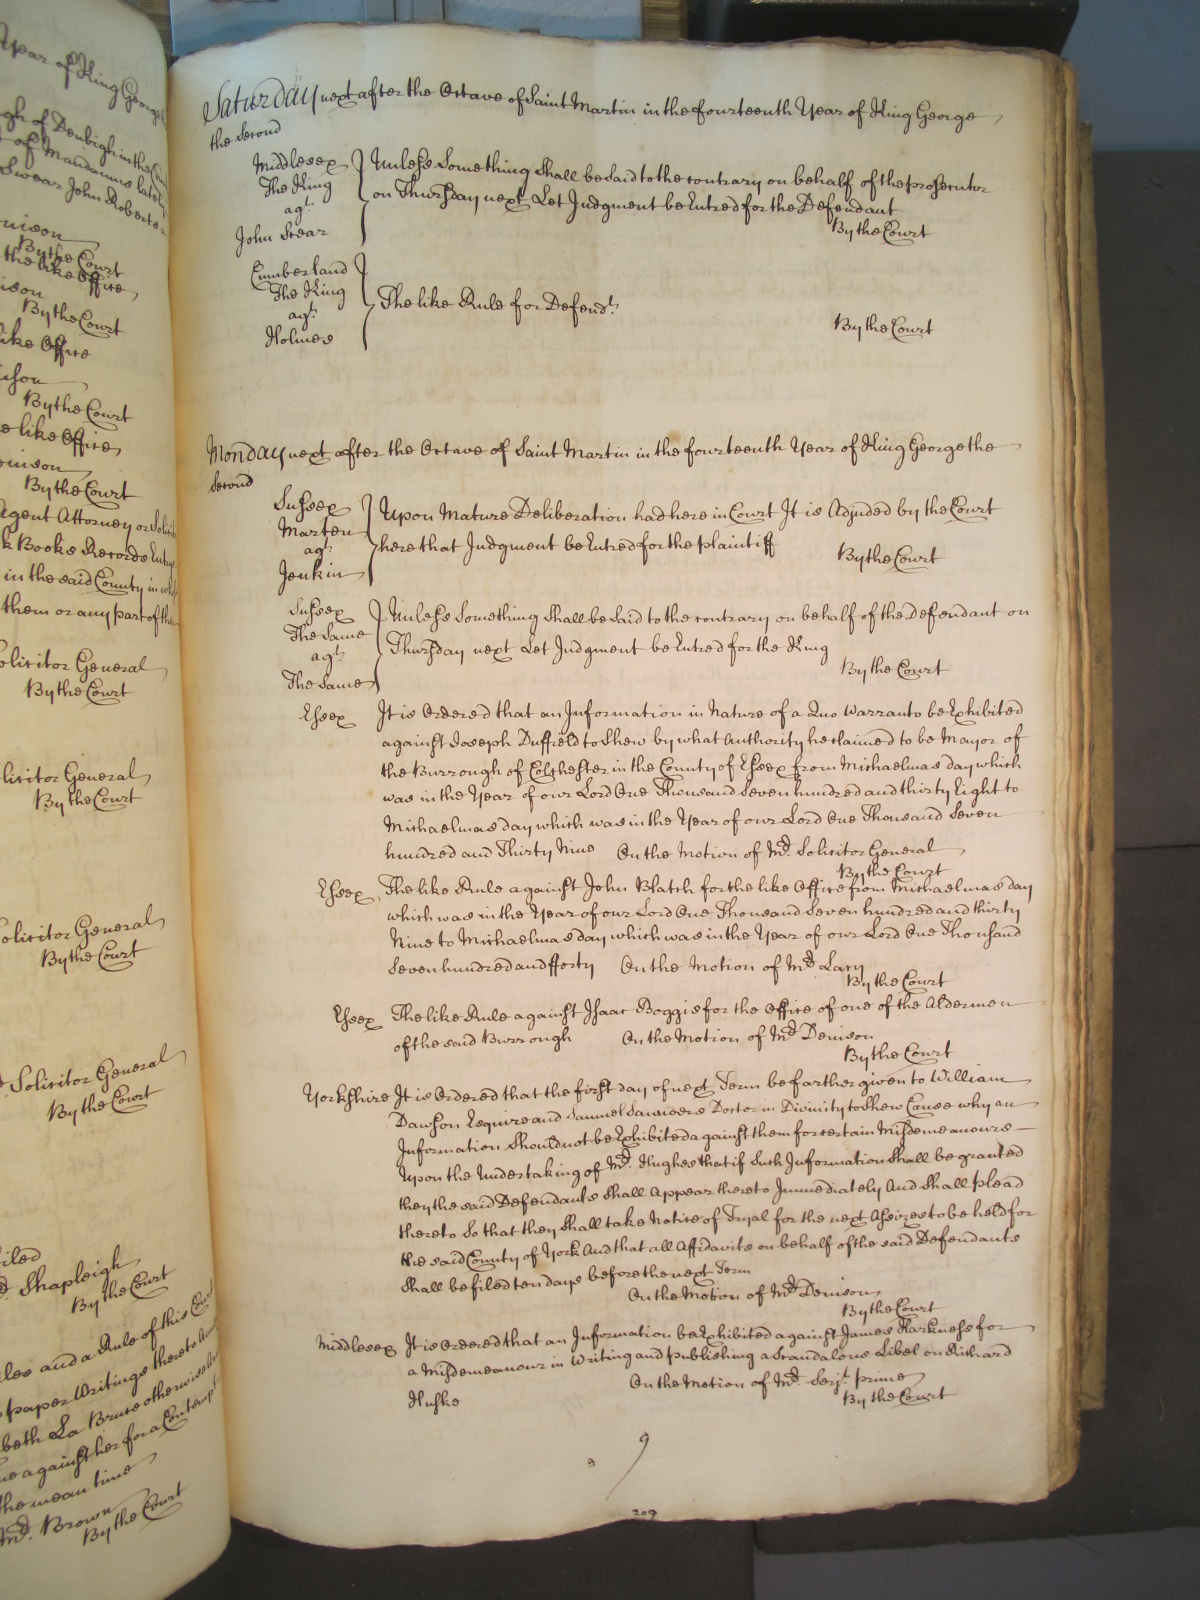 Year of King George
gh of Denbigh in the Coun
t of Mandamus lately
Swear John Roberts
nison
By the Court
the like Office
ison
By the Court
like Office
ison
By the Court
e like Office
nison
By the Court
Agent Attorney or Solici
k Books Records Entrys
in the said County in wh
them or any part of them
olicitor General
By the Court
licitor General
By the Court
olicitor General
By the Court
Solicitor General
By the Court
iled
Mr. Shapleigh
By the Court
iles and a Rule of this Court
paper Writings thereto
beth La Bruce otherwise
ue against her for a Contempt
the mean time
Mr. Brown
By the Court
Saturday next after the Octave of Saint Martin in the fourteenth Year of King George
the Second
Middlesex
The King
agt.
John Stear
Unless Something Shall be Said to the contrary on behalf of the prosecutor
on Thursday next Let Judgment be Entred for the Defendant
By the Court
Cumberland
The King
agt.
Holmes
The like Rule for Defendt.
By the Court
Monday next after the Octave of Saint Martin in the fourteenth Year of King George the
Second
Sussex
Marten
agt.
Jenkin
Upon Mature Deliberation had here in Court It is Adjuded by the Court
here that Judgment be Entred for the plaintiff
By the Court
Sussex
The Same
agt.
The Same
Unless Something Shall be Said to the contrary on behalf of the Defendant on
Thursday next Let Judgment be Entred for the King
By the Court
Essex It is Ordered that an Information in Nature of a Quo Warranto be Exhibited
against Joseph Duffield to Shew by what Authority he claimed to be Mayor of
the Burrough of Colchester in the County of Essex from Michaelmas day which
was in the Year of our Lord One Thousand Seven hundred and thirty Eight to
Michaelmas day which was in the Year of our Lord One Thousand Seven
hundred and Thirty Nine On the Motion of Mr. Solicitor General
By the Court
Essex The like Rule against John Blatch for the like Office from Michaelmas day
which was in the Year of our Lord One Thousand Seven hundred and thirty
Nine to Michaelmas day which was in the Year of our Lord One Thousand
Seven hundred and fforty On the Motion of Mr. Lacy
By the Court
Essex The like Rule against Isaac Boggis for the Office of one of the Aldermen
of the said Burrough On the Motion of Mr. Denison
By the Court
Yorkshire It is Ordered that the first day of next Term be farther given to William
Dawson Esquire and Samuel Saunders Doctor in Divinity to Shew Cause why an
Information Should not be Exhibited against them for certain Misdemeanours
Upon the Undertaking of Mr. Hughes that if Such Information Shall be granted
they the said Defendants Shall Appear thereto Immediately And Shall plead
thereto So that they Shall take Notice of Tryal for the next Assizes to be held for
the said County of York And that all Affidavits on behalf of the said Defendants
Shall be filed ten days before the next Term
On the Motion of Mr. Denison
By the Court
Middlesex It is Ordered that an Information be Exhibited against James Harkness for
a Misdemeanour in Writing and publishing a Scandalous Libel on Richard
Huske On the Motion of Mr. Serjt. prime
By the Court
9
209